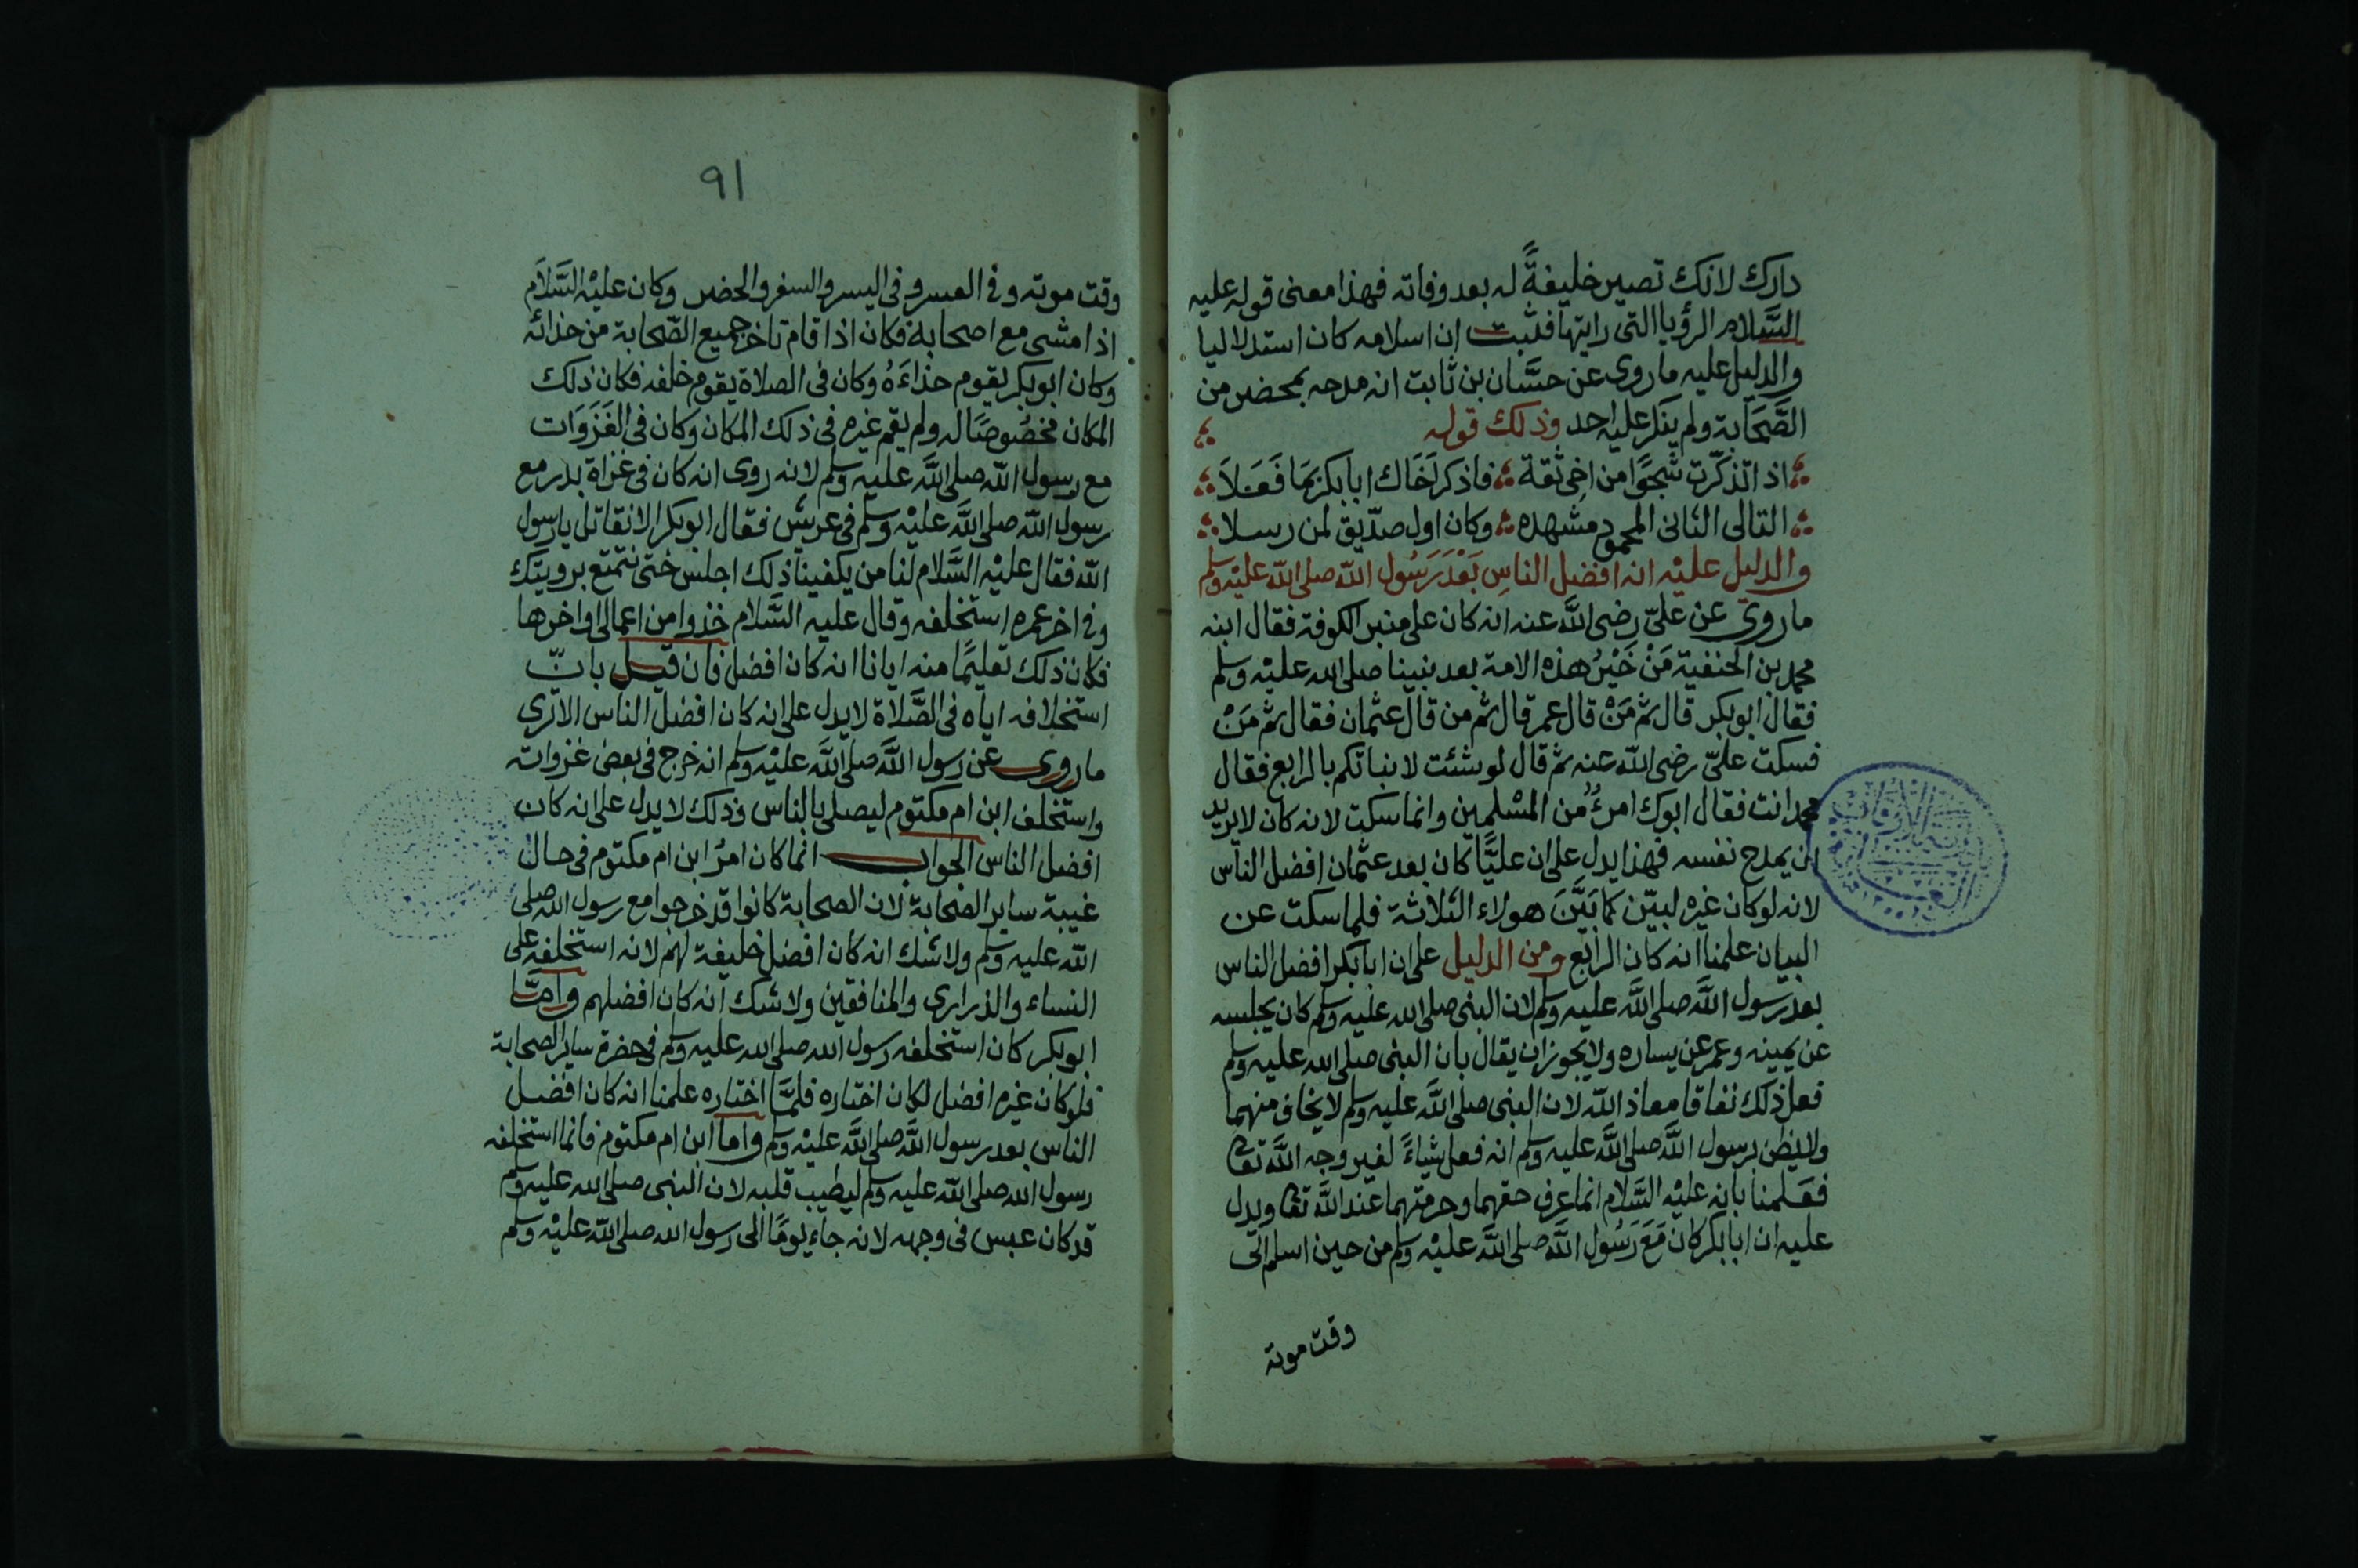 دارك لانك تصير خليفةً له بعد وفاته فهذا معنى قوله عليه
السَّلام الرؤيا التى رايتها فثبت ان اسلامه كان استدلاليا
والدليل عليه ما روى عن حسَّان بن ثابت انه مدحه بمحضر من
الصَّحَابة ولم ينكر عليه احد وذلك قوله
اذا تذكّرت شجوًا من اخى ثقة فاذكر اخَاك ابا بكر بمَا فَعَلاَ
التالى الثانى المحمود مشهده وكان اول صدّيق لمن رسلا
والدليل عليْه انه افضل الناسِ بَعْدَ رَسُول الله صلى الله عليْه وسلم
ما روى عن علىّ رضى اللَّه عنه انه كان على منبر الكوفة فقال ابنه
محمد بن الحنفية مَنْ خَيْرُ هذه الامة بعد نبينا صلى الله عليْه وسلم
فقال ابو بكر قال ثم مَنْ قال عمر قال ثم من قال عثمان فقال ثم مَنْ
فسكت علىّ رضى الله عنه ثم قال لو شئت لانباتكم بالرابع فقال
محمد انت فقال ابوك امرءٌ من المسْلمين وانما سكت لانه كان لا يريد
ان يمدح نفسه فهذا يدل على ان عليًّا كان بعد عثمان افضل الناس
لانه لو كان غيره لبيّن كما بَيَّنَ هولاء الثلاثة فلما سكت عن
البيان علمنا انه كان الرابع ومن الدليل على ان ابا بكر افضل الناس
بعد رسول اللَّه صلى اللَّه عليه وسلم لان النبى صلى الله عليه وسلم كان يجلسه
عن يمينه وعمر عن يساره ولا يجوز ان يقال بان النبى صلى الله عليه وسلم
فعل ذلك نفاقا معاذ الله لان النبى صلى اللَّه عليه وسلم لا يخاف منهما
ولا يظن برسول اللَّه صلى اللَّه عليه وسلم انه فعل شياءً لغير وجه اللَّه تعا
فعَلمنا بانه عليْه السَّلام انما عرف حقهما وحرمتهما عند اللَّه تعا ويدل
عليه ان ابا بكر كان مَعَ رَسُول اللَّه صلى اللَّه عليْه وسلم من حين اسلم الى
وقت موته
٩١
وقت موته وفى العسر وفى اليسر والسفر والحضر وكان عليْه السَّلاَم
اذا مشى مع اصحابه فكان اذا قام تاخر جميع الصّحابة من حذائه
وكان ابو بكر يقوم حذاءَهُ وكان فى الصلاة يقوم خلفه فكان ذلك
المكان مخصُوصًا له ولم يقم غيره فى ذلك المكان وكان فى الغَزَوَات
مع رسول الله صلى اللَّه عليه وسلم لانه روى انه كان فى غزاة بدر مع
رسول الله صلى اللَّه عليْه وسلم فى عريش فقال ابو بكر الا نقاتل يا رسول
الله فقال عليْه السَّلام لنا من يكفينا ذلك اجلس حتى نتمتع برويتك
وفى اخر عمره استخلفه وقال عليه السَّلام خذوا من اعمالى اواخرها
فكان ذلك تعليمًا منه ايانا انه كان افضل فان قيل بانّ
استخلافه اياه فى الصَّلاة لا يدل على انه كان افضل الناس الا ترى
ما روى عن رسول اللَّه صلى اللَّه عليْه وسلم انه خرج فى بعض غزواته
واستخلف ابن ام مكتوم ليصلى بالناس وذلك لا يدل على انه كان
افضل الناس الجواب انما كان امرُ ابن ام مكتوم فى حال
غيبة ساير الصحابة لان الصحابة كانوا قد خرجوا مع رسول الله صلى
الله عليه وسلم ولا شك انه كان افضل خليفة لهم لانه استخلفه على
النساء والذرارى والمنافقين ولا شك انه كان افضلهم وامَّا
ابو بكر كان استخلفه رسول الله صلى الله عليه وسلم فى حضرة ساير الصحابة
فلو كان غيره افضل لكان اختاره فلمَّا اختاره علمنا انه كان افضل
الناس بعد رسول اللَّه صلى اللَّه عليْه وسلم واما ابن ام مكتوم فانما استخلفه
رسول الله صلى الله عليه وسلم ليطيب قلبه لان النبى صلى الله عليه وسلم
قد كان عبس فى وجهه لانه جاء يومًا الى رسول الله صلى الله عليْه وسلم